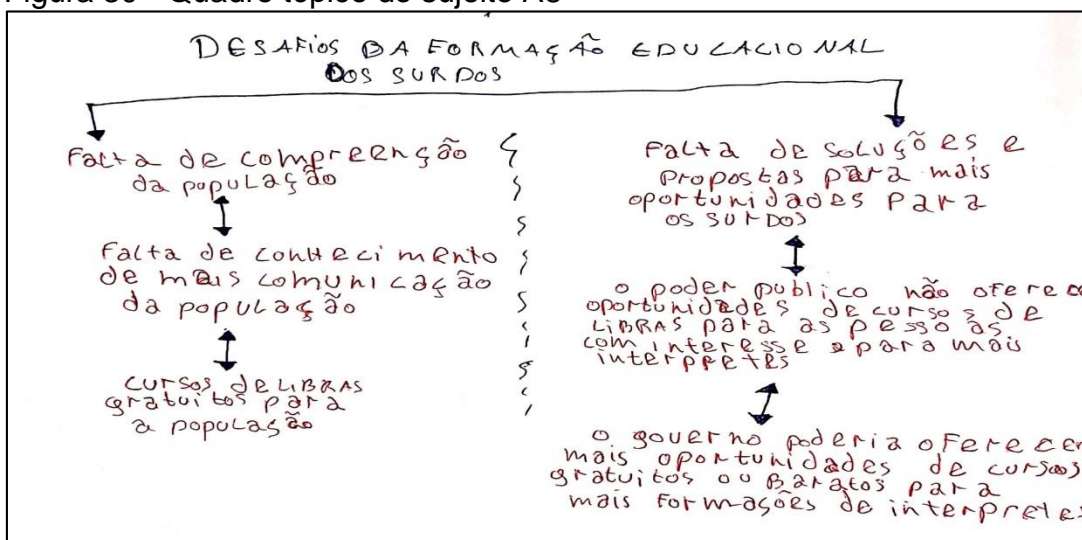 DESAFIOS DA FORMAÇÃO EDUCACIONAL
DOS SURDOS
Falta de compreenção
da população
Falta de conhecimento
de mais comunicação
da população
cursos de LIBRAS
gratuitos para
a população
Falta de soluções e
propostas para mais
oportunidades para
os surdos
o poder publico não oferece
oportunidades de cursos de
LIBRAS para as pessoas
com interesse e para mais
interpretes
o governo poderia oferecer
mais oportunidades de cursos
gratuitos ou baratos para
mais formações de interpretes